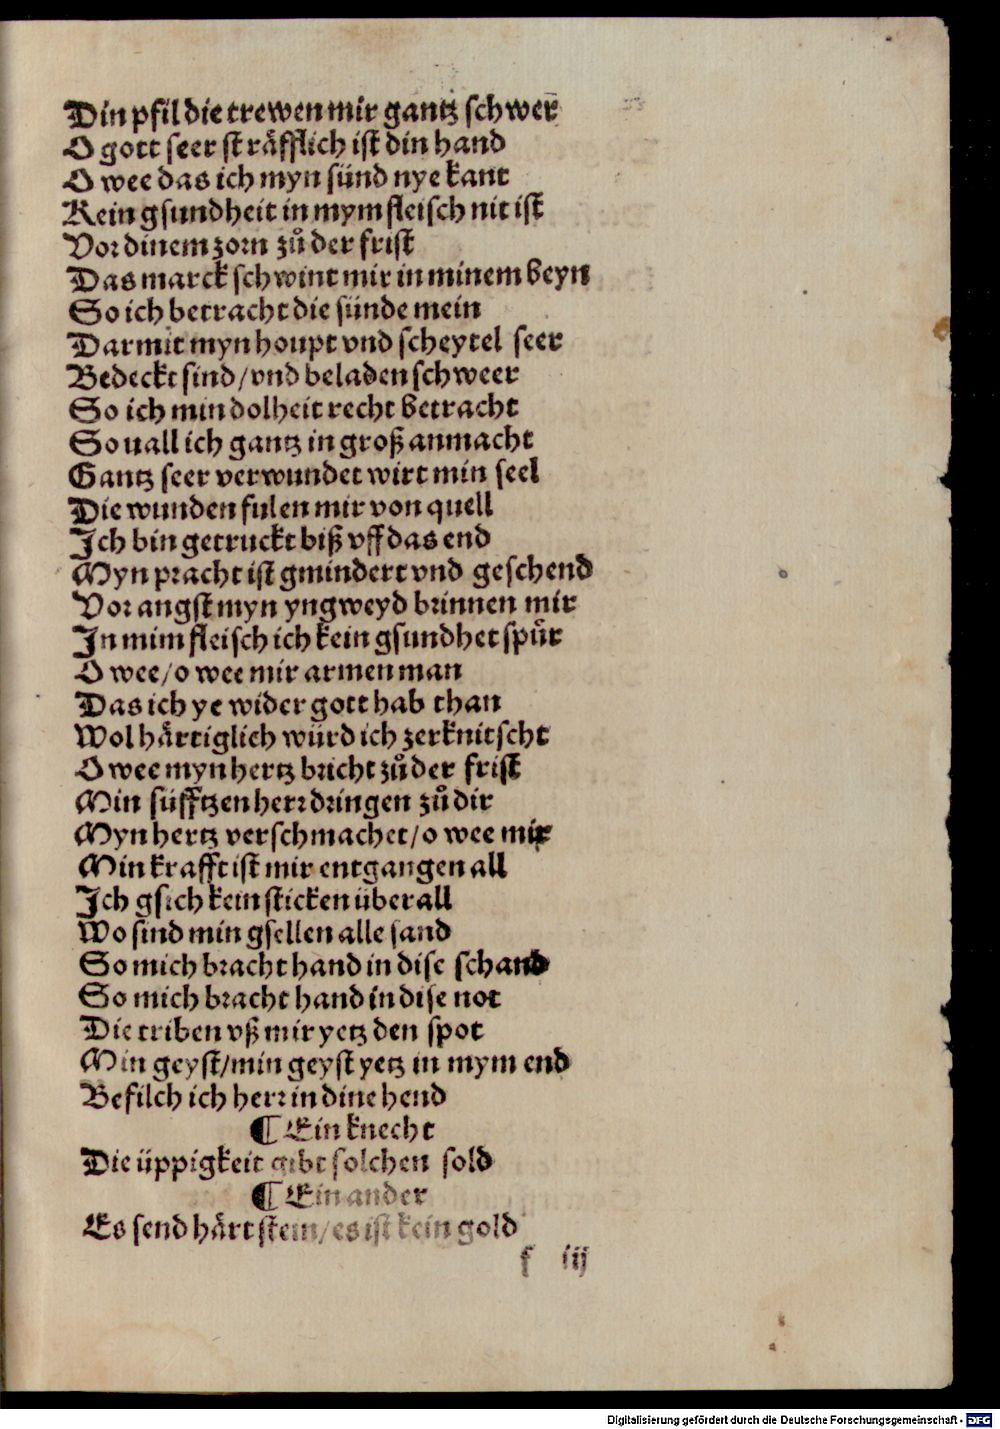 Din pfil die trewen mir gantz schwer
O gott seer sträfflich ist din hand
O wee das ich myn sünd nye kant
Kein gsundheit in mym fleisch nit ist
Vor dinem zorn zů der frist
Das marck schwint mir in minem beyn
So ich betracht die sünde mein
Darmit myn houpt vnd scheytel seer
Bedeckt sind/vnd beladen schweer
So ich min dolheit recht betracht
So uall ich gantz in groß anmacht
Gantz seer verwundet wirt min seel
Die wunden fulen mir von quell
Ich bin getruckt biß vff das end
Myn pracht ist gmindert vnd geschend
Vor angst myn yngweyd brinnen mir
In mim fleisch ich kein gsundhet spůr
O wee/o wee mir armen man
Das ich ye wider gott hab than
Wol härtiglich würd ich zerknitscht
O wee myn hertz bricht zů der frist
Min süfftzen herr dringen zů dir
Myn hertz verschmachet/o wee mir
Min krafft ist mir entgangen all
Ich gsich kein sticken überall
Wo sind min gsellen alle sand
So mich bracht hand in dise schand
So mich bracht hand in dise not
Die triben vß mir yetz den spot
Min geyst/min geyst yetz in mym end
Befilch ich herr in dine hend
¶ Ein knecht
Die üppigkeit gibt solchen sold
¶ Ein ander
Es send härt stein/es ist kein gold
f iij
Digitalisierung gefördert durch die Deutsche Forschungsgemeinschaft - DFG